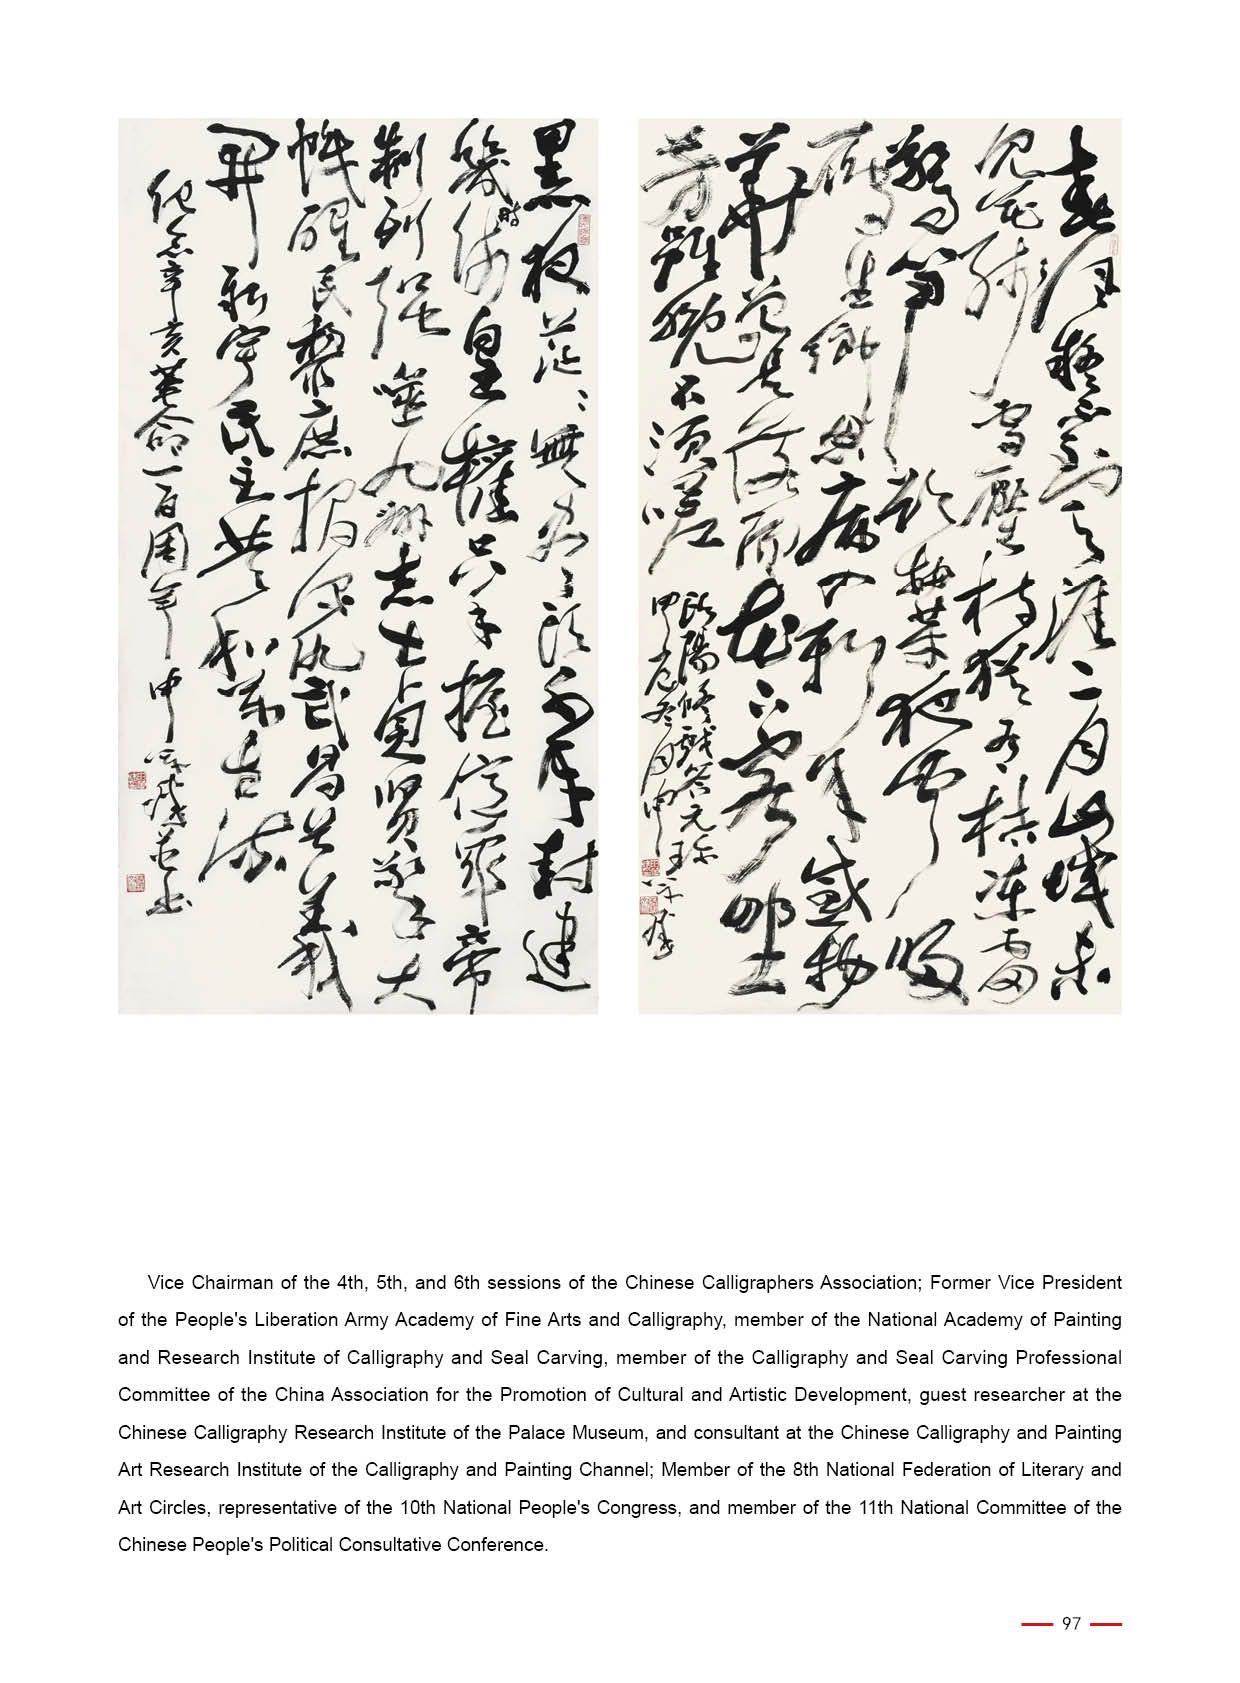 春風疑不到天涯二月山城未
見花殘雪壓枝猶有桔凍雷
驚笋欲抽芽夜聞歸
雁生鄉思病入新年感物
華曾是洛陽花下客野
芳雖晚不須嗟
歐陽修戲答元珍
冬月申
黑夜茫茫無盡頭封建
幾時休皇權只手握億眾帝
制列强噬九州志士貞賢擎大
幟醒民黎庶報深仇武昌首義
開新宇民主共和萬古流
纪念辛亥革命一百周年申
Vice Chairman of the 4th, 5th, and 6th sessions of the Chinese Calligraphers Association; Former Vice President
of the People's Liberation Army Academy of Fine Arts and Calligraphy, member of the National Academy of Painting
and Research Institute of Calligraphy and Seal Carving, member of the Calligraphy and Seal Carving Professional
Committee of the China Association for the Promotion of Cultural and Artistic Development, guest researcher at the
Chinese Calligraphy Research Institute of the Palace Museum, and consultant at the Chinese Calligraphy and Painting
Art Research Institute of the Calligraphy and Painting Channel; Member of the 8th National Federation of Literary and
Art Circles, representative of the 10th National People's Congress, and member of the 11th National Committee of the
Chinese People's Political Consultative Conference.
97